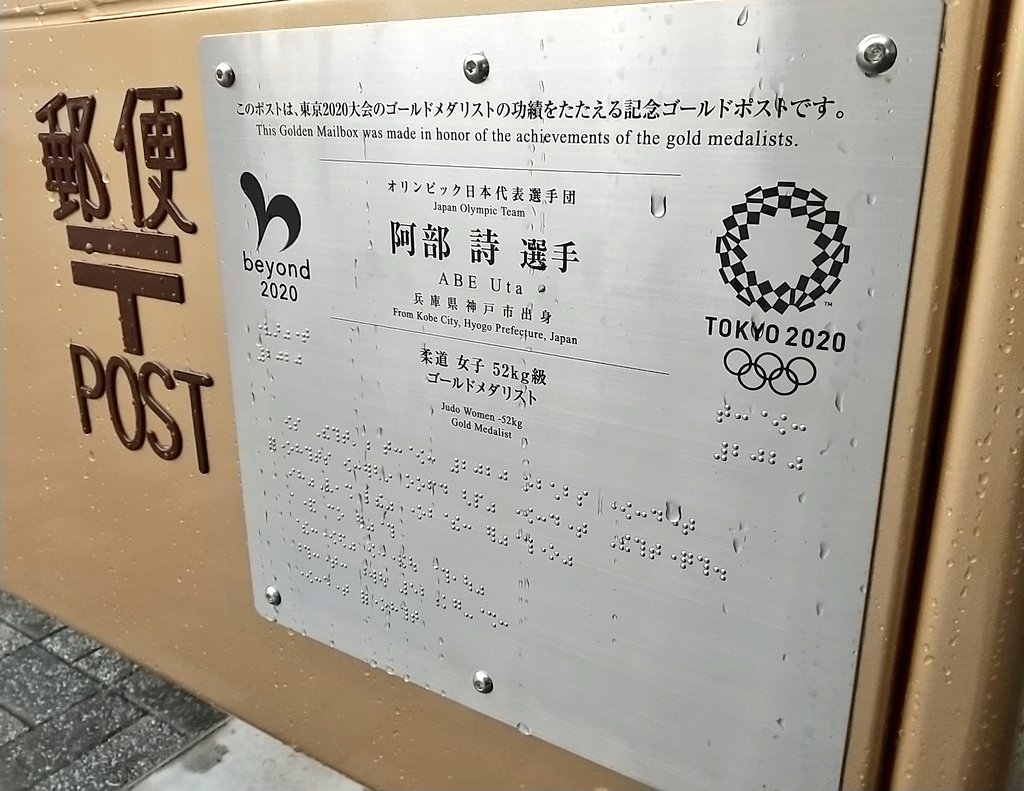 郵便
〒
POST
このポストは、東京2020大会のゴールドメダリストの功績をたたえる記念ゴールドポストです。
This Golden Mailbox was made in honor of the achievements of the gold medalists.
オリンピック日本代表選手団
Japan Olympic Team
阿部 詩 選手
ABE Uta
兵庫県神戸市出身
From Kobe City, Hyogo Prefecture, Japan
柔道 女子 52kg級
ゴールドメダリスト
Judo Women -52kg
Gold Medalist
beyond
2020
TM
TOKYO 2020